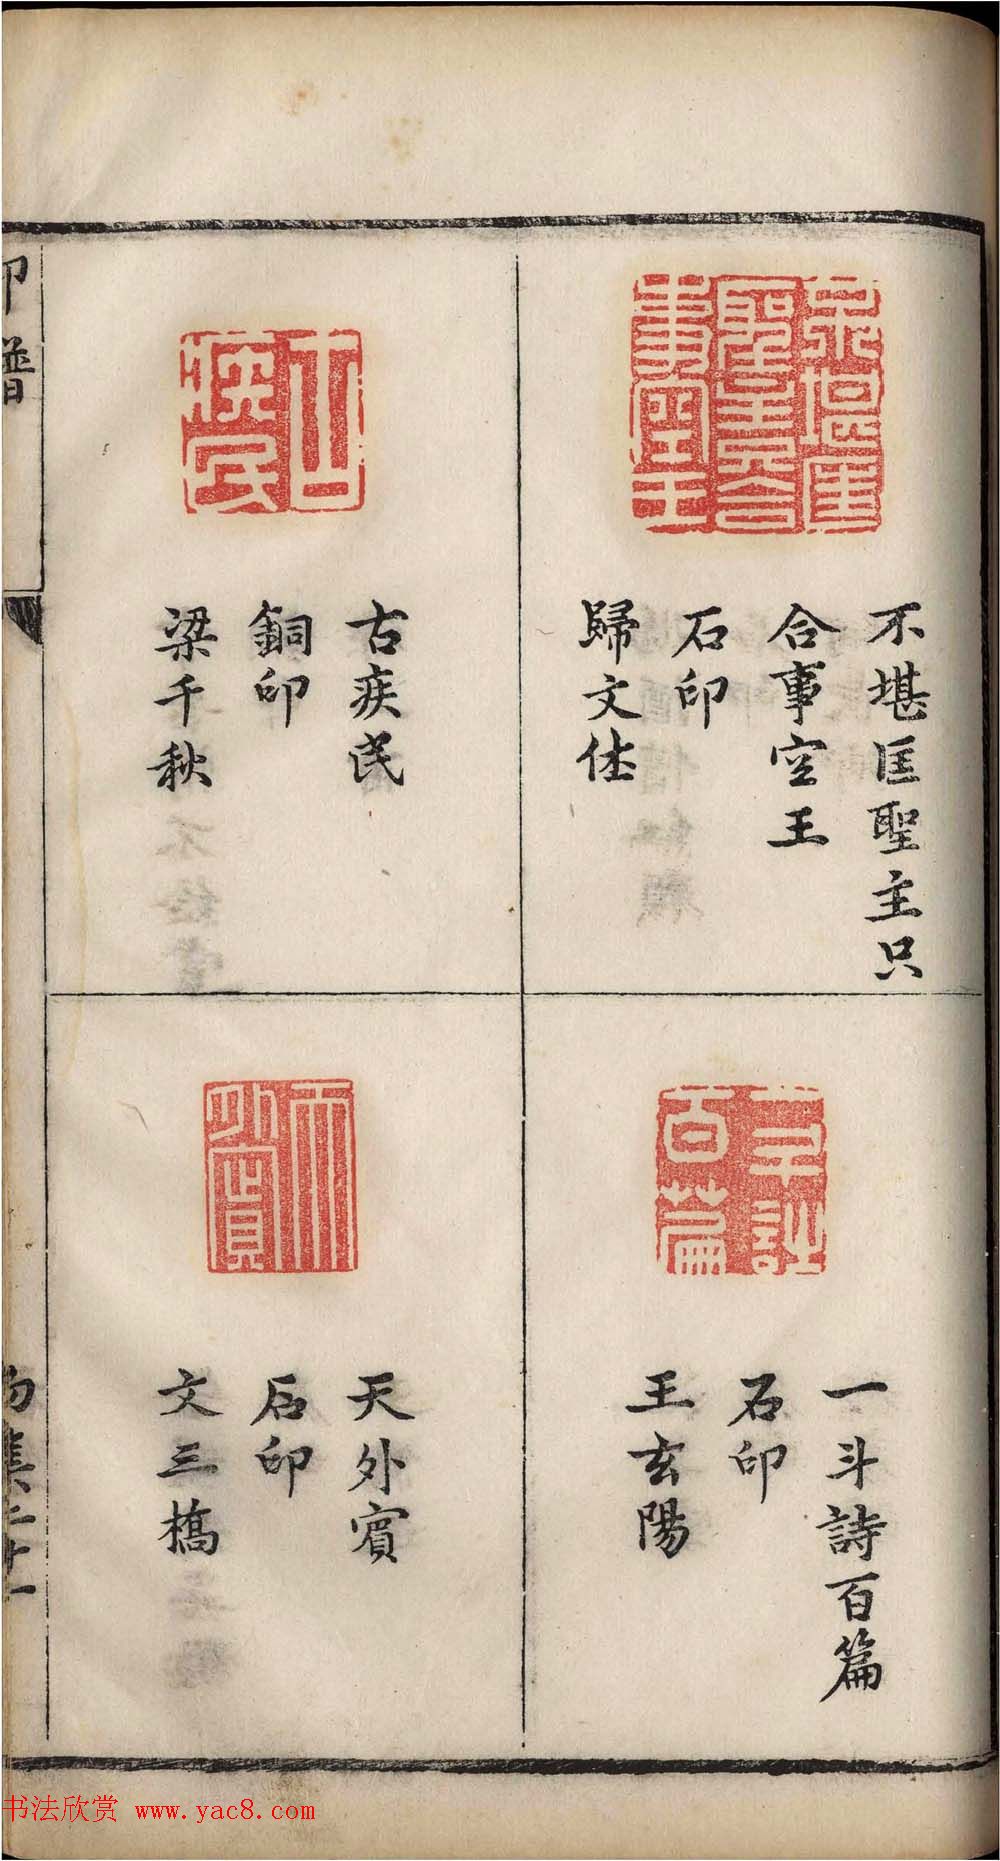 不堪匡聖主只
合事空王
石印
歸文休
古疾民
銅印
梁千秋
一斗詩百篇
石印
王玄陽
天外賓
石印
文三橋
印譜
書法欣赏 www.yac8.com